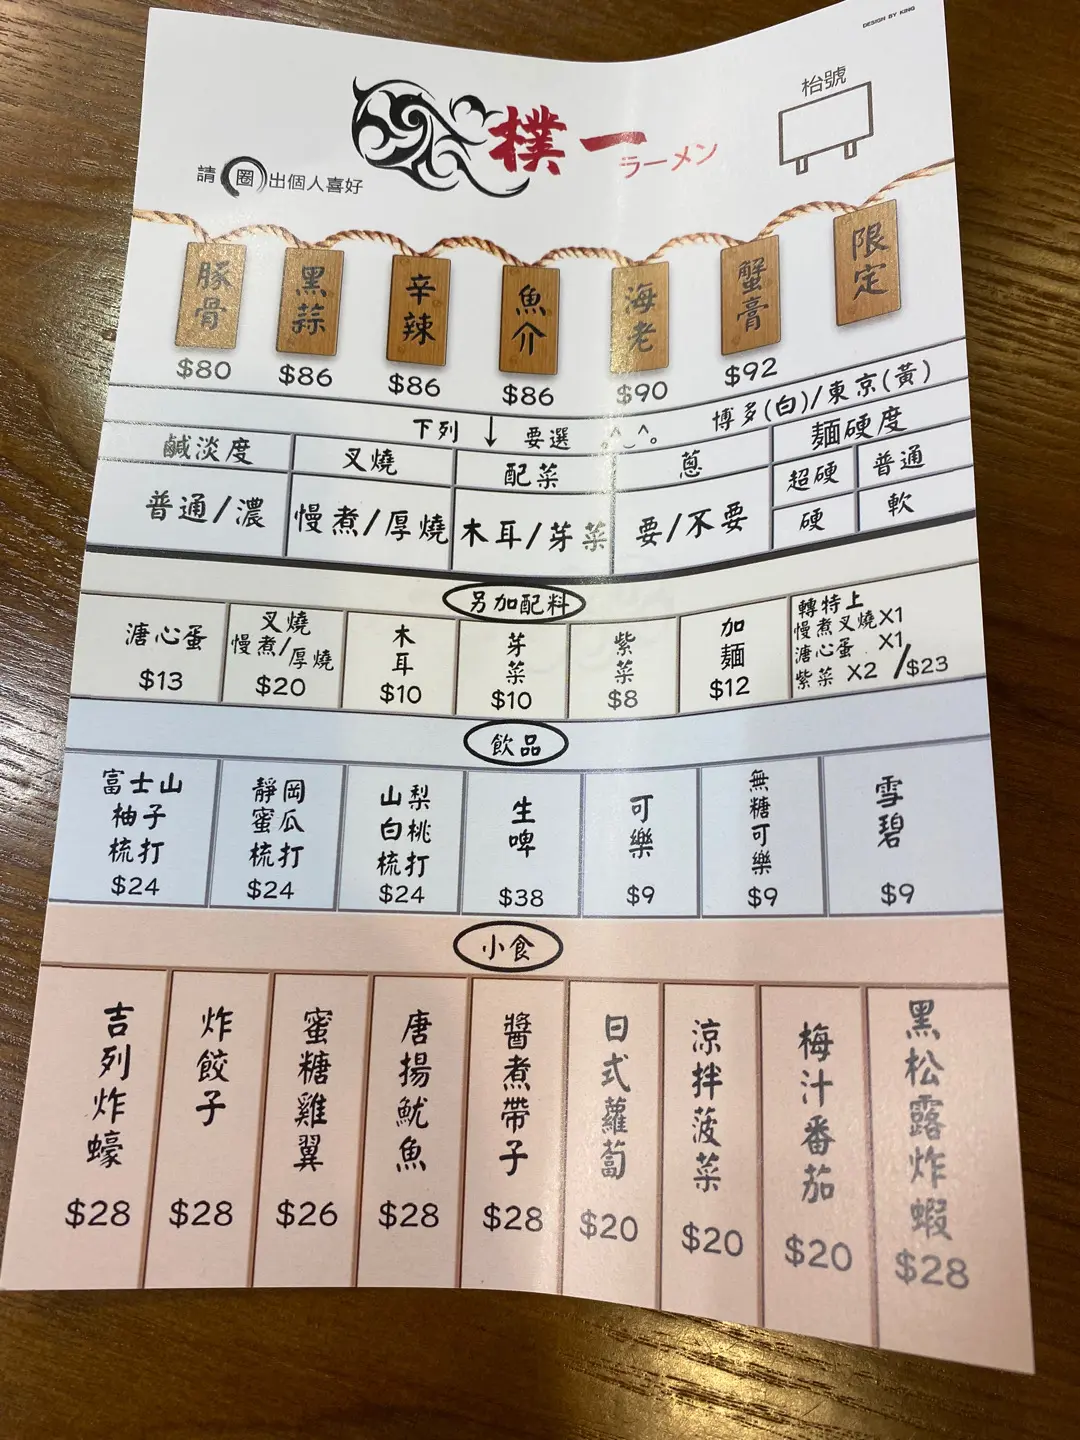 DESIGN BY KING
枱號
樸一
ラーメン
請圈出個人喜好
豚骨
$80
黑蒜
$86
辛辣
$86
魚介
$86
海老
$90
蟹膏
$92
限定
下列↓要選
博多(白)/東京(黃)
鹹淡度
普通/濃
叉燒
慢煮/厚燒
配菜
木耳/芽菜
蔥
要/不要
麵硬度
超硬
普通
硬
軟
另加配料
溏心蛋
$13
叉燒
慢煮/厚燒
$20
木耳
$10
芽菜
$10
紫菜
$8
加麵
$12
轉特上
慢煮叉燒X1
溏心蛋 X1
紫菜 X2 /$23
飲品
富士山
柚子
梳打
$24
靜岡
蜜瓜
梳打
$24
山梨
白桃
梳打
$24
生啤
$38
可樂
$9
無糖可樂
$9
雪碧
$9
小食
吉列炸蠔
$28
炸餃子
$28
蜜糖雞翼
$26
唐揚魷魚
$28
醬煮帶子
$28
日式蘿蔔
$20
涼拌菠菜
$20
梅汁番茄
$20
黑松露炸蝦
$28